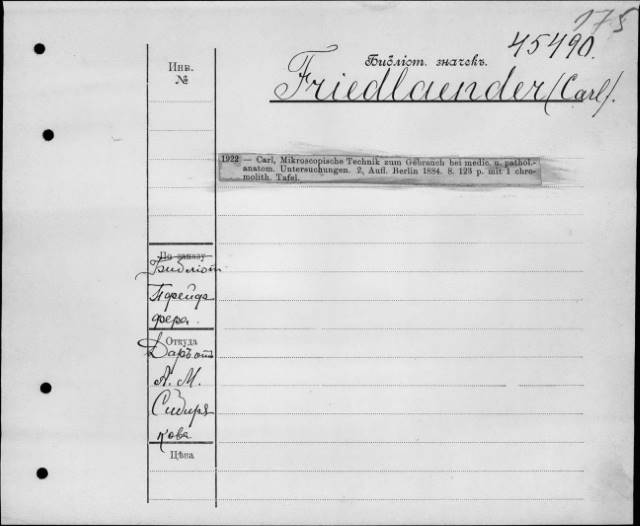 175
45490.
Библіот. значекъ.
Friedlaender (Carl).
Инв.
№
1922 — Carl, Mikroscopische Technik zum Gebrauch bei medic. u. pathol.-
anatom. Untersuchungen. 2, Aufl. Berlin 1884. 8. 123 p. mit 1 chro-
molith. Tafel.
По заказу
Библіот.
Пфейф
фера.
Откуда
Даръ отъ
А. М.
Сибиря
кова
Цѣна